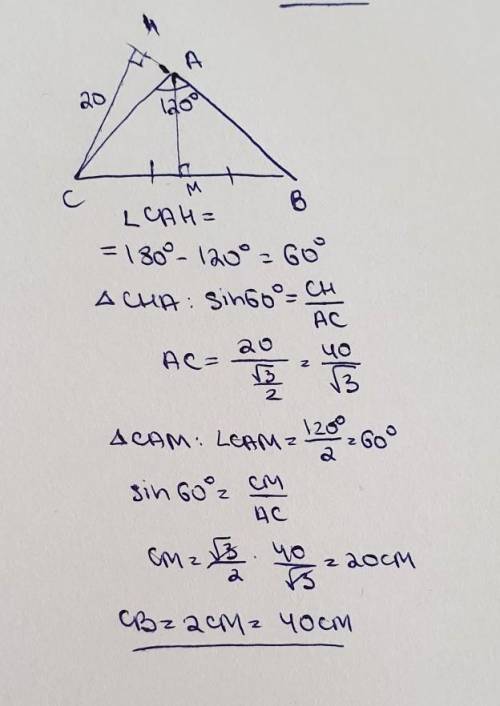 H
A
20
120°
C
M
B
∟CAH =
= 180° - 120° = 60°
△CHA : sin60° = CH/AC
AC = 20/(√3/2) = 40/√3
△CAM : ∟CAM = 120°/2 = 60°
sin 60° = CM/AC
CM = √3/2 · 40/√3 = 20CM
CB = 2CM = 40CM